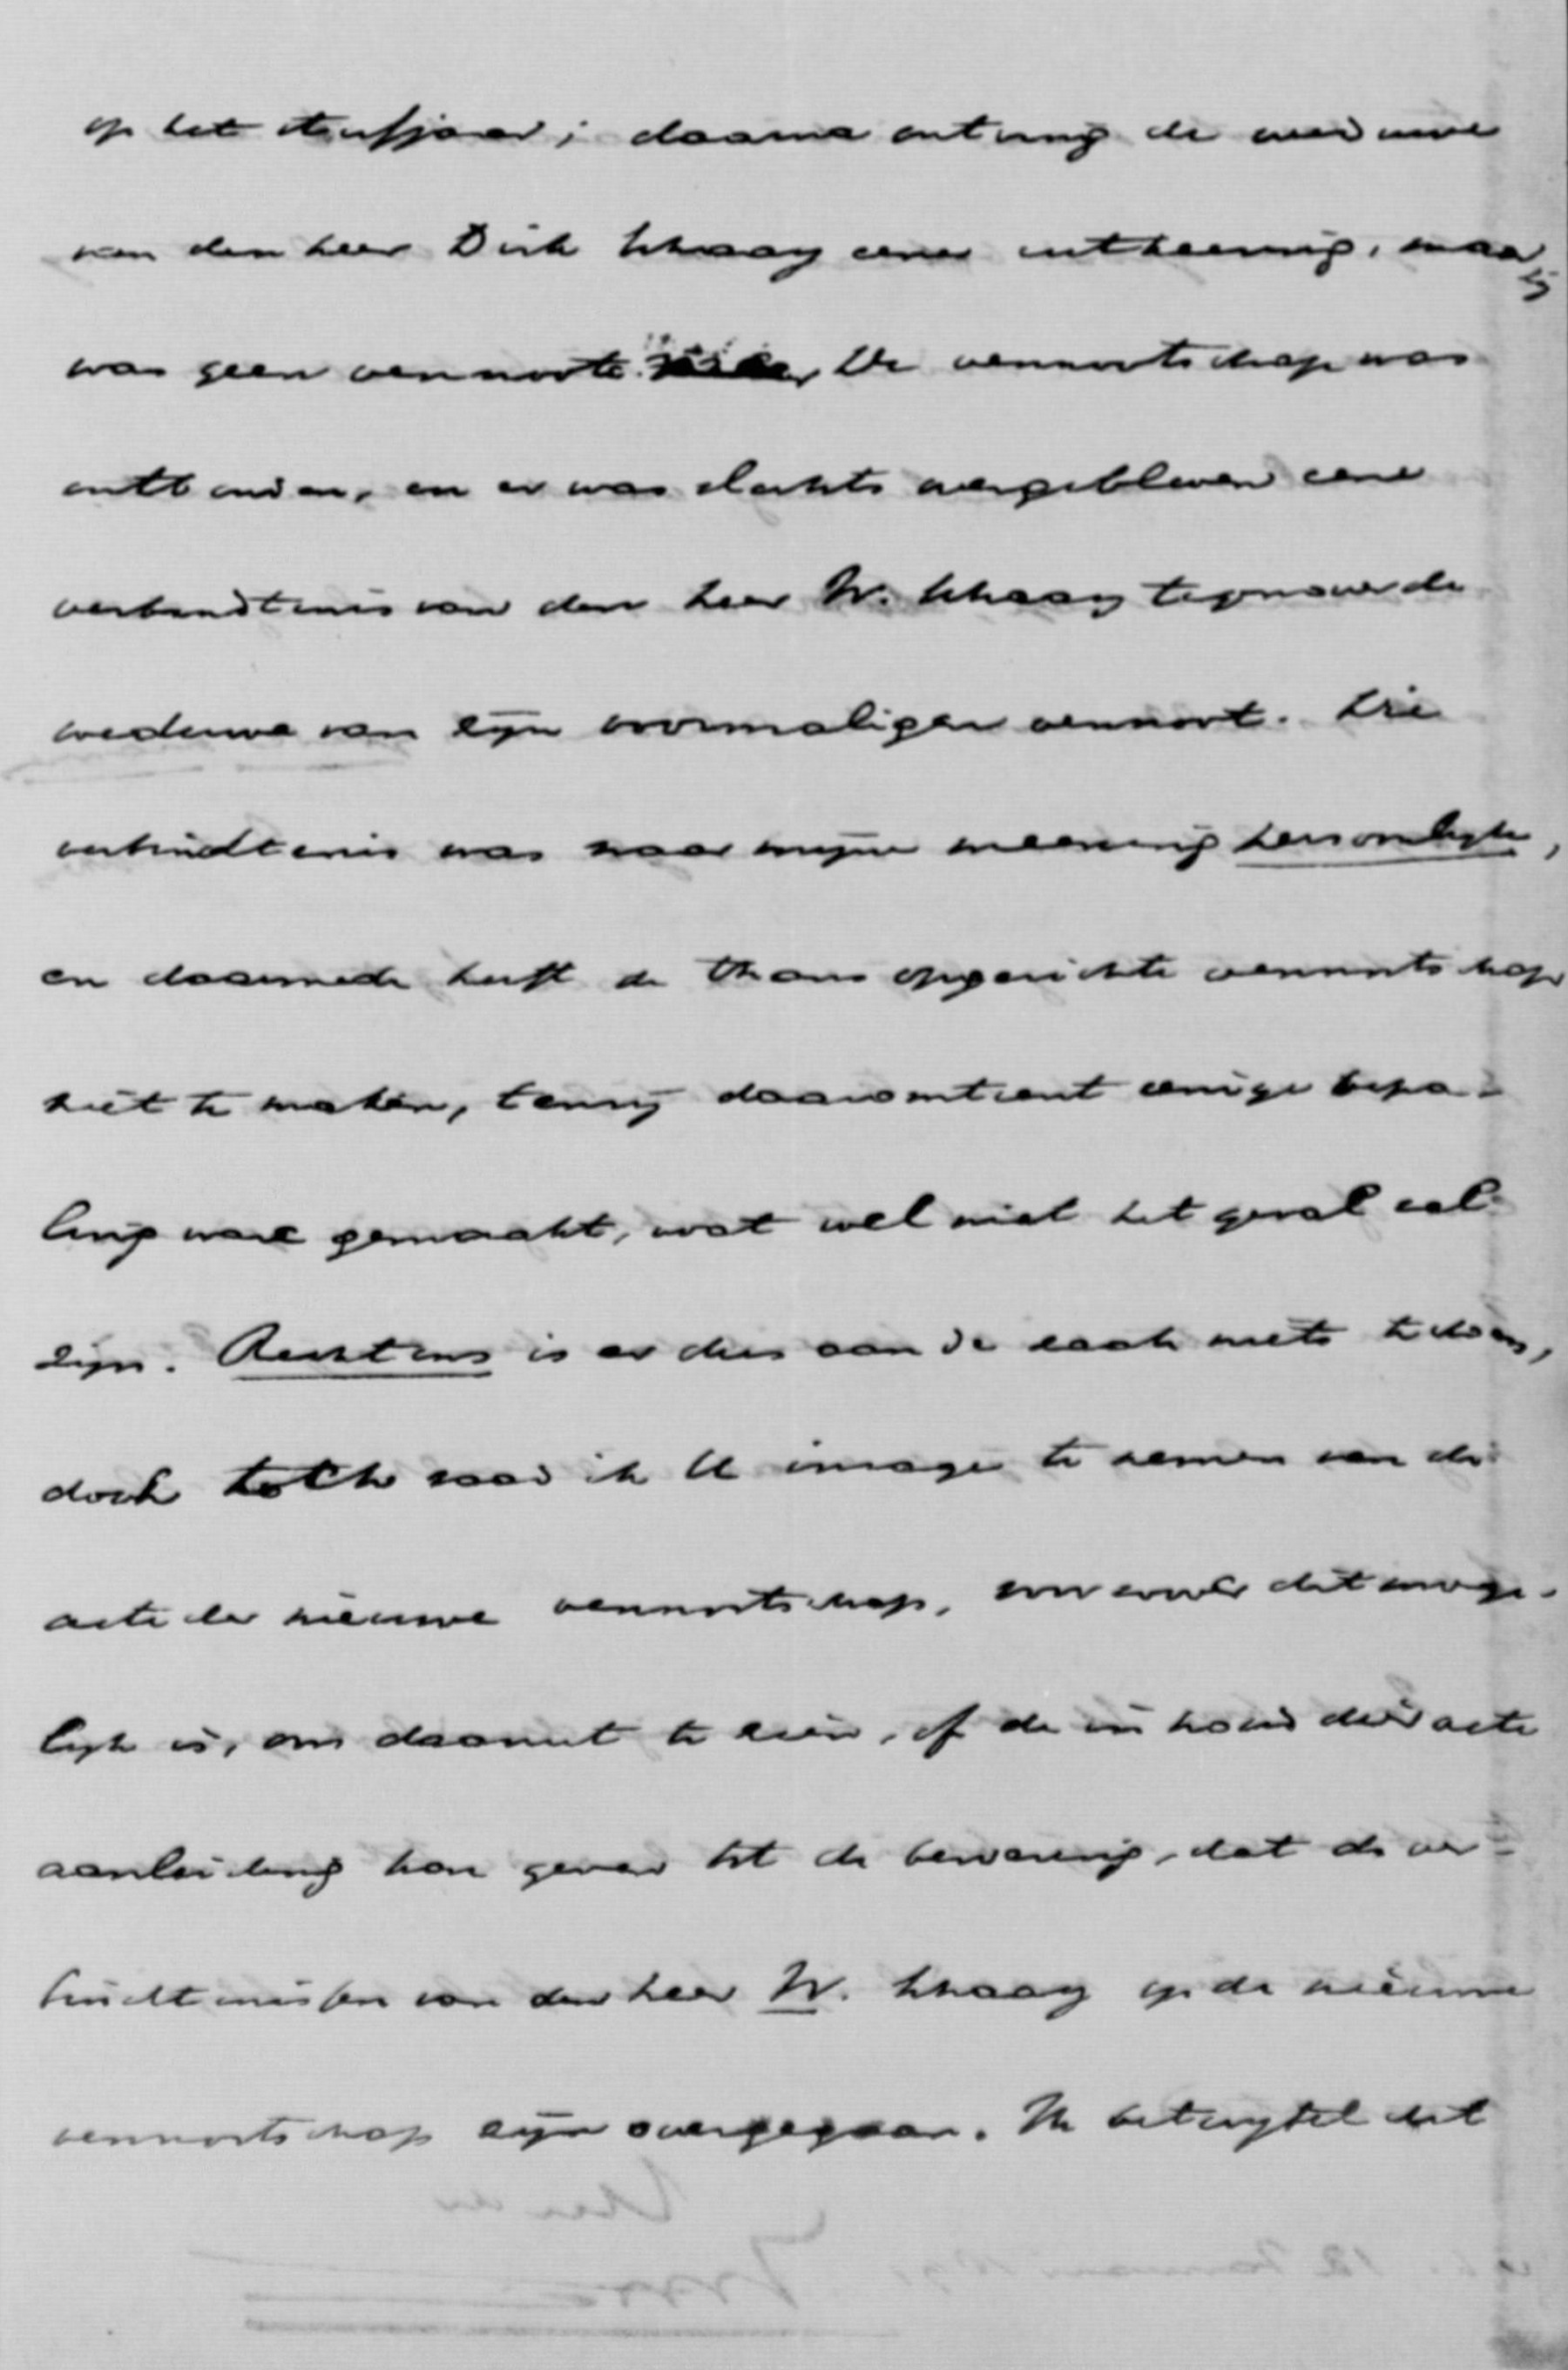 op het sterfjaar; daarna ontving de weduwe
van den heer Dirk Schaay eene uitkeering, maar zij
was geen vennoote. De vennootschap was
ontbonden, en er was slechts overgebleven eene
verbindtenis van den heer W. Schaay tegenover de
weduwe van zijn voormaligen vennoot. Die
verbindtenis was naar mijne meening persoonlijk,
en daarmede heeft de thans opgerichte vennootschap
niet te maken, tenzij daaromtrent eenige bepa-
ling ware gemaakt, wat wel niet het geval zal
zijn. Rechtens is er dus aan de zaak niets te doen,
doch toch raad ik U inzage te nemen van de
acte der nieuwe vennootschap, zoo dit moge-
lijk is, om daaruit te zien, of de inhoud dier acte
aanleiding kan geven tot de bewering, dat de ver-
bindtenissen van den heer W. Schaay op de nieuwe
vennootschap zijn overgegaan. Ik betwijfel dit